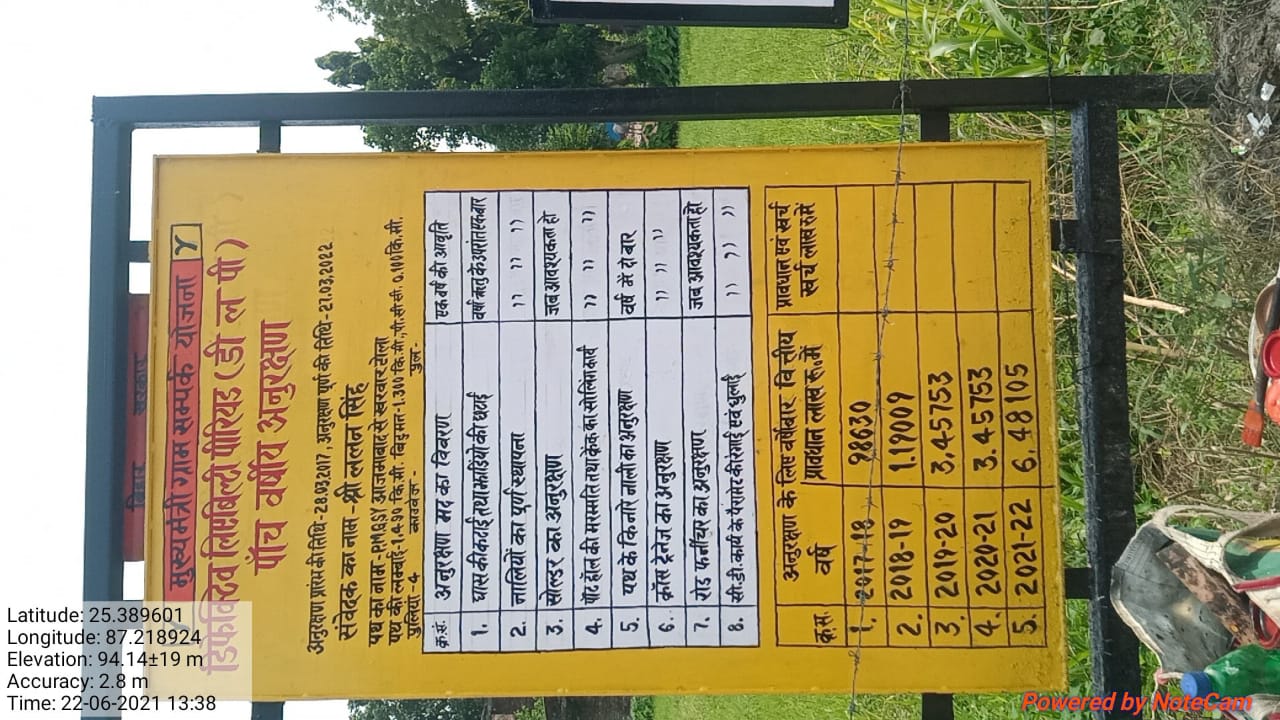 बिहार सरकार
मुख्य मंत्री ग्राम सम्पर्क योजना
डिफेक्टिव लिएबिलिटी पीरियड (डी ल पी)
पाँच वर्षीय अनुरक्षण
अनुरक्षण प्रारंभ की तिथि-28.03.2017, अनुरक्षण पूर्ण की तिथि-27.03.2022
संवेदक का नाम -श्री ललन सिंह
पथ का नाम-P.M.G.S.Y आजमाबाद से खरवार टोला
पथ की लम्बाई-1.490 कि.मी. बिटुमन-1.300 कि.मी., पी.सी.सी. 0.190 कि.मी.
पुलिया - 4 कलवर्ट- पुल-
क्र.सं. अनुरक्षण मद का विवरण एक वर्ष की आवृति
1. घास की कटाई तथा झाडियों की छटाई वर्षा ऋतु के उपरांत एक बार
2. नालियों का पूर्ण स्थापना " " "
3. सोल्डर का अनुरक्षण जब आवश्यकता हो
4. पॉट हॉल की मरम्मति तथा क्रैक का सीलिंग कार्य " " "
5. पथ के किनारे नाली का अनुरक्षण वर्ष में दो बार
6. क्रॉस ड्रेनेज का अनुरक्षण " "
7. रोड फर्नीचर का अनुरक्षण जब आवश्यकता हो
8. सी.डी. कार्य के पैरामेट की रंगाई एवं धुलाई " " "
अनुरक्षण के लिए वर्षवार वित्तीय
क्र.स. वर्ष प्रावधान लाख रू. में प्रावधान एवं खर्च
खर्च लाख रु में
1. 2017-18 98630
2. 2018-19 1.19009
3. 2019-20 3.45753
4. 2020-21 3.45753
5. 2021-22 6.48105
Latitude: 25.389601
Longitude: 87.218924
Elevation: 94.14±19 m
Accuracy: 2.8 m
Time: 22-06-2021 13:38
Powered by NoteCam